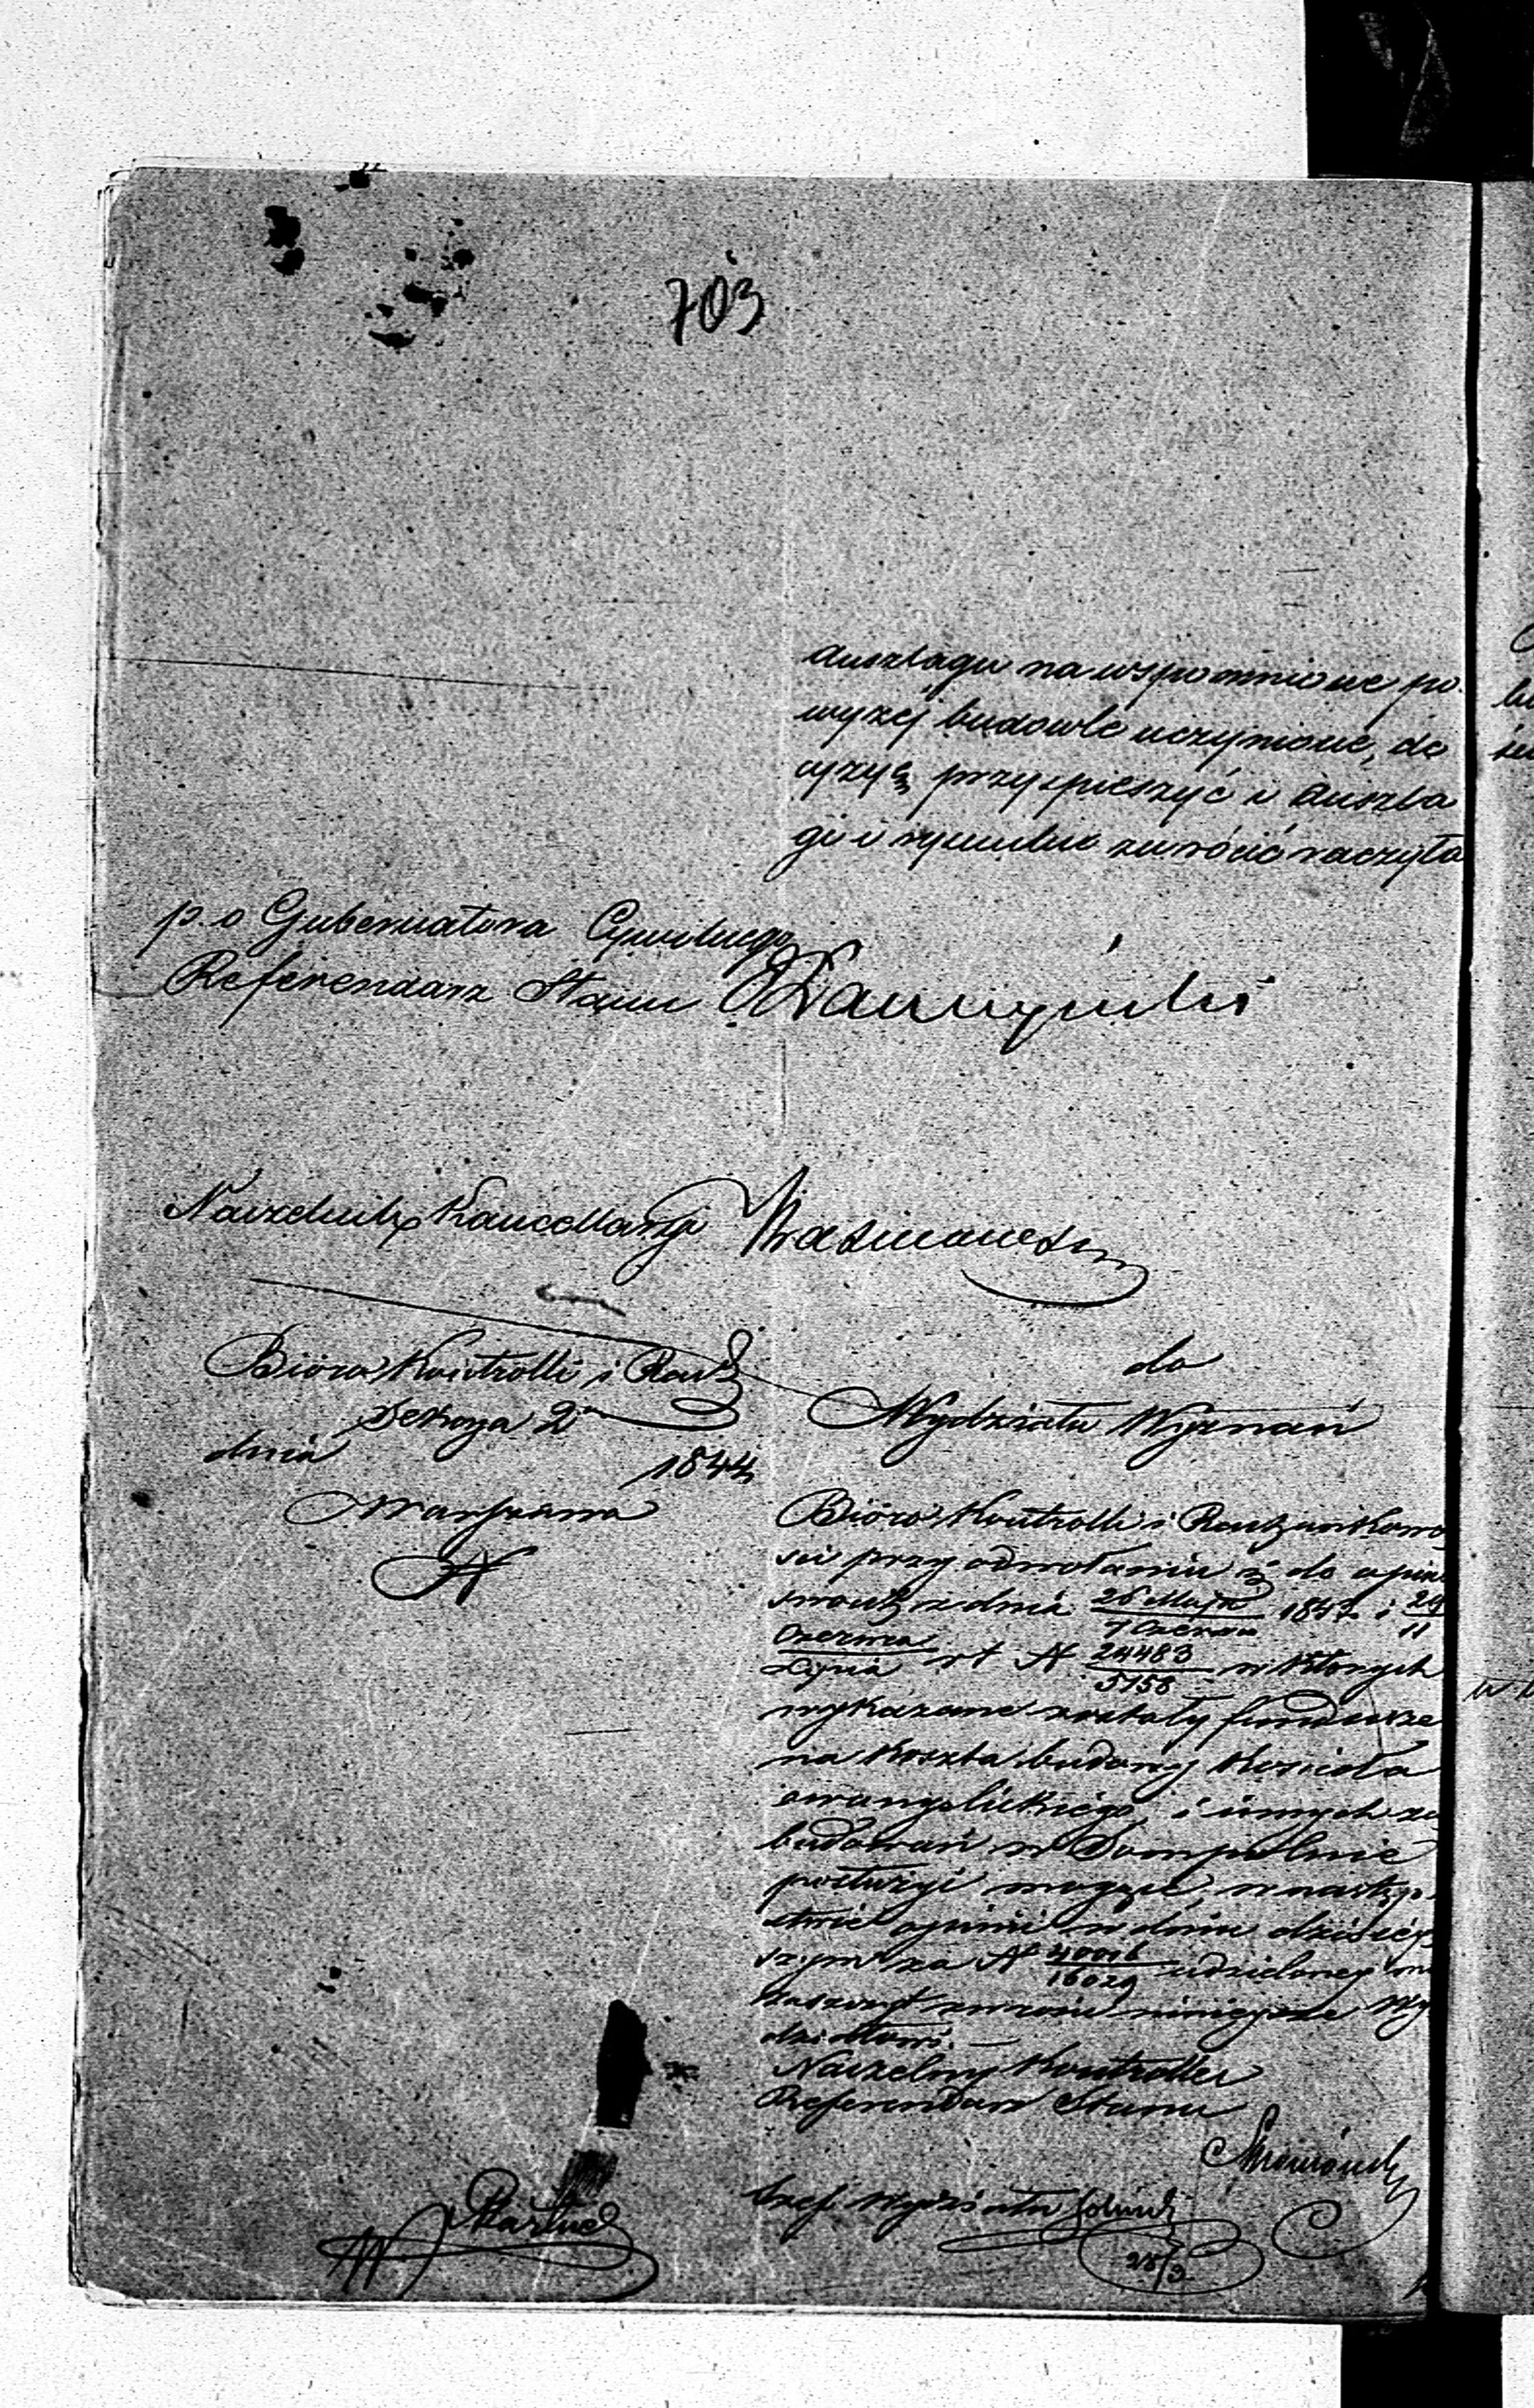 703
Anszlagu na wspomnione po-
wyżej budowle uczynione, de
cyzyą przyspieszyć i Anszla
gi i rysunki zwrócić raczyła
p. o Gubernatora Cywilnego
Referendarz Stanu
Naczelnik Kancellaryi
Bióro Kontrolli i Rach
Sekcya 2
dnia 1844
Warszawa
N
do
Wydziału Wyznań
Bióro Kontrolli i Rachunkowo
ści przy odwołaniu się do opin
swoich z dnia 26 Maja / 7 Czerwca 184 i 29 / 11
Czerwca / Lipca r t N 24483 / 5158 w których
wykazane zostały fundusze
na koszta budowy Kościoła
ewangelickiego, i innych za
budowań w Sompolnie
posłużyć mogące, w następ-
stwie opinii w dniu dzisiej
szym za N 40016 / 16029 udzieloney
zwraca niniejsze Wy
działowi.
Naczelny Kontroller
Referendarz Stanu
Szef Wydziału
28/2